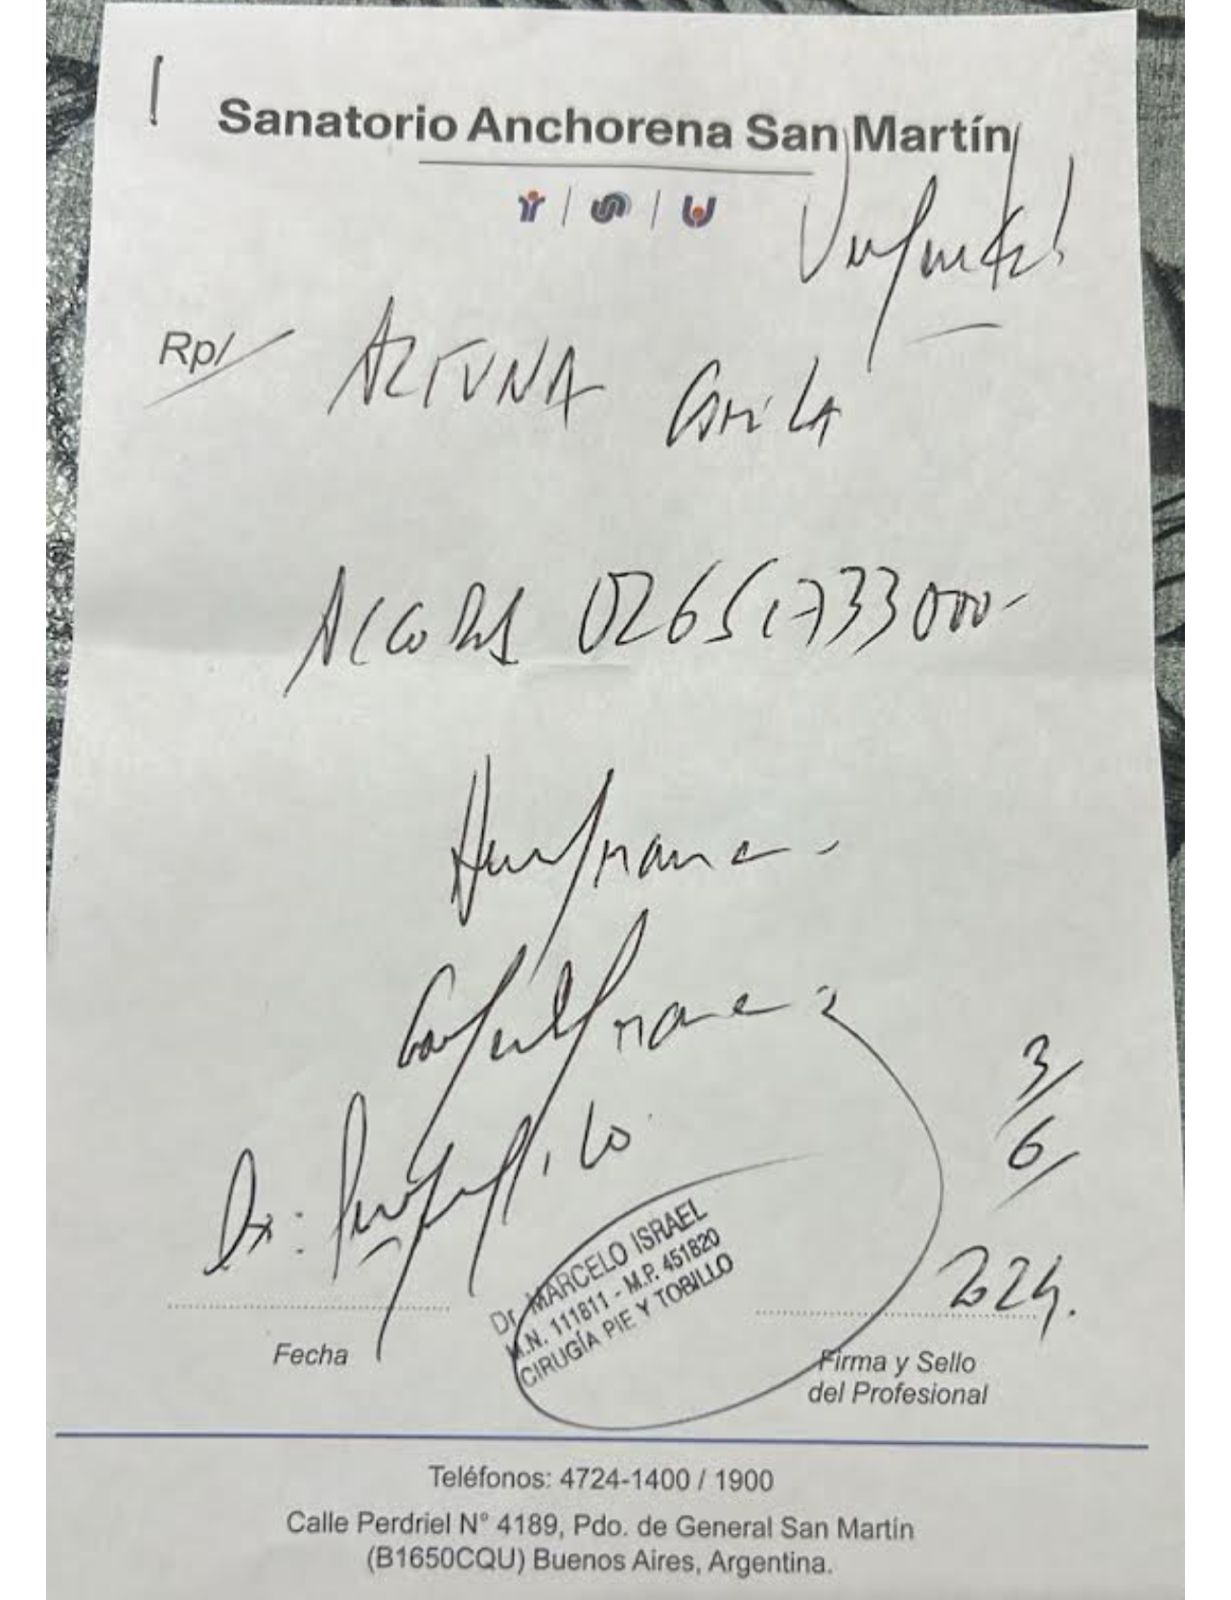 Sanatorio Anchorena San Martín
Urgente!
Rp/ ALTUNA Camila
ACCORD 02651733000-
Hemograma -
Coagulograma
Dx: Prequirúrgico
3/
6/
2024.
Dr. MARCELO ISRAEL
M.N. 111811 - M.P. 451820
CIRUGÍA PIE Y TOBILLO
Fecha
Firma y Sello
del Profesional
Teléfonos: 4724-1400 / 1900
Calle Perdriel N° 4189, Pdo. de General San Martín
(B1650CQU) Buenos Aires, Argentina.